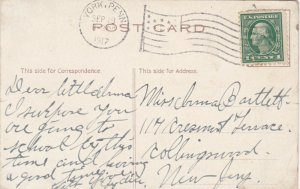 YORK, PENN
SEP 19
1917
POST CARD
This side for Correspondence.
This side for Address.
1 CENT 1
Dear little Anna
I suppose you
are going to
school by this
time and having
a good time
Miss Anna Bartlett
117 Cresmont Terrace.
Collingswood
New Jersey